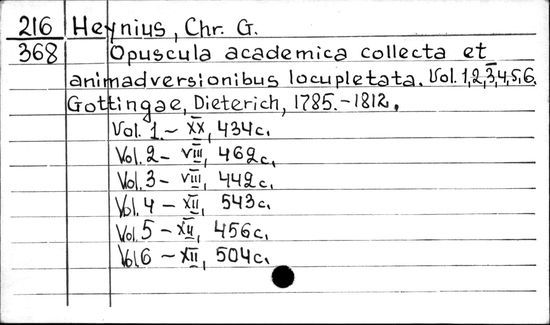 216 Heynius, Chr. G.
368 Opuscula academica collecta et
animadversionibus locupletata. Vol. 1,2,3,4,5,6.
Gottingae, Dieterich, 1785.-1812.
Vol. 1 - XX, 434c.
Vol. 2 - VIII, 462c.
Vol. 3 - VIII, 442c.
Vol. 4 - XII, 543c.
Vol. 5 - XII, 456c.
Vol 6 - XII, 504c.